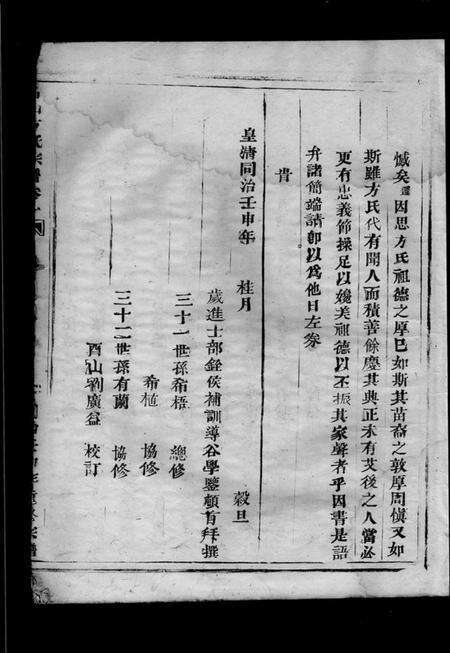 憾矣還因思方氏祖德之厚已如斯其苗裔之敦厚周慎又如
斯雖方氏代有聞人而積善餘慶其典正未有艾後之人當必
更有忠義節操足以媲美祖德以丕振其家聲者乎因書是語
弁諸簡端請卽以爲他日左劵
旹
皇清同治壬申年 桂月 穀旦
歲進士部銓侯補訓導谷學鑒頓首拜撰
三十一世孫希梧 總修
希植 協修
三十二世孫有蘭 協修
酉山劉廣益 校訂